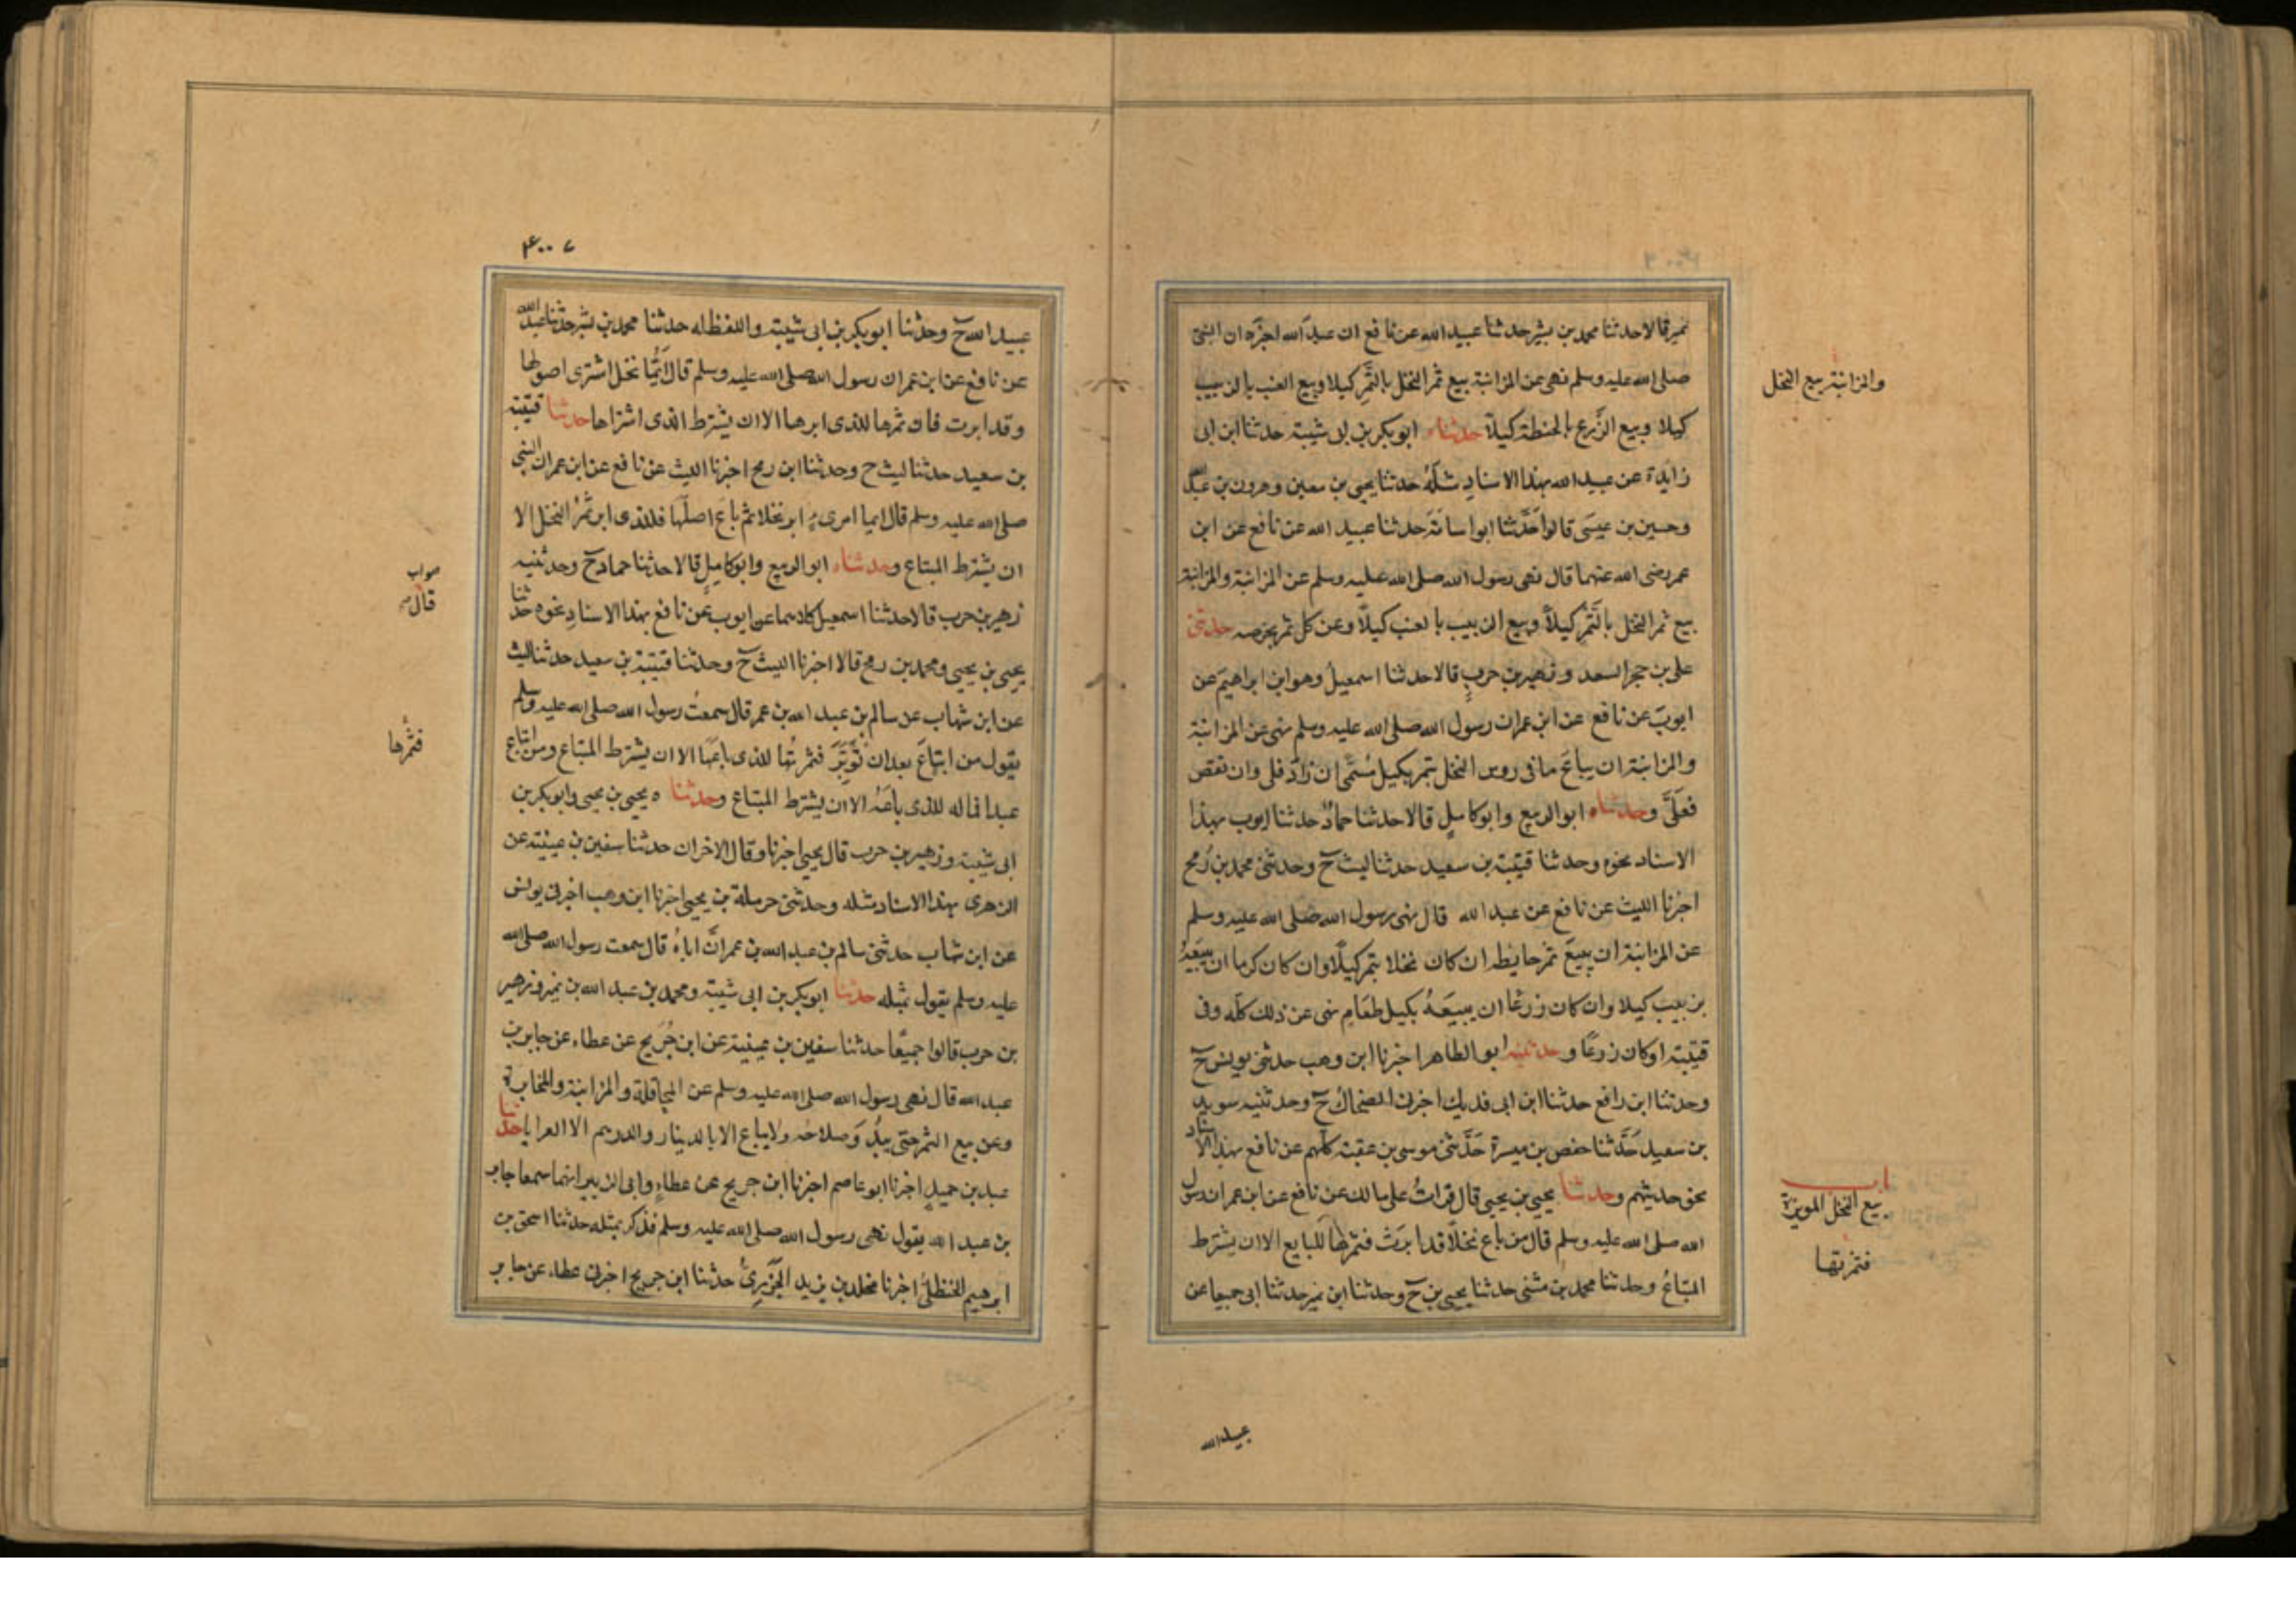 نمير قالا حدثنا محمد بن بشر حدثنا عبيد الله عن نافع ان عبد الله اخبره ان النبى
صلى الله عليه وسلم نهى عن المزابنة بيع ثمر النخل بالتمر كيلا وبيع العنب بالزبيب
كيلا وبيع الزرع بالحنطة كيلا حدثناه ابو بكر بن ابى شيبة حدثنا ابن ابى
زايدة عن عبيد الله بهذا الاسناد مثله حدثنا يحيى بن معين وهرون بن عبد الله
وحسين بن عيسى قالوا حدثنا ابو اسامة حدثنا عبيد الله عن نافع عن ابن
عمر رضى الله عنهما قال نهى رسول الله صلى الله عليه وسلم عن المزابنة والمزابنة
بيع ثمر النخل بالتمر كيلا وبيع الزبيب بالعنب كيلا وعن كل ثمر بخرصه حدثنى
على بن حجر السعد وزهير بن حرب قالا حدثنا اسمعيل وهو ابن ابراهيم عن
ايوب عن نافع عن ابن عمر ان رسول الله صلى الله عليه وسلم نهى عن المزابنة
والمزابنة ان يباع ما فى روس النخل بتمر بكيل مسمى ان زاد فلى وان نقص
فعلى وحدثناه ابو الربيع وابو كامل قالا حدثنا حماد حدثنا ايوب بهذا
الاسناد نحوه وحدثنا قتيبة بن سعيد حدثنا ليث ح وحدثنى محمد بن رمح
اخبرنا الليث عن نافع عن عبد الله قال نهى رسول الله صلى الله عليه وسلم
عن المزابنة ان يبيع ثمر حايطه ان كان نخلا بتمر كيلا وان كان كرما ان يبيعه
بزبيب كيلا وان كان زرعا ان يبيعه بكيل طعام نهى عن ذلك كله وفى
قتيبة او كان زرعا وحدثنيه ابو الطاهر اخبرنا ابن وهب حدثنى يونس ح
وحدثنا ابن رافع حدثنا ابن ابى فديك اخبرنى الضحاك ح وحدثنيه سويد
بن سعيد حدثنا حفص بن ميسرة حدثنى موسى بن عقبة كلهم عن نافع بهذا الاسناد
نحو حديثهم وحدثنا يحيى بن يحيى قال قرات على مالك عن نافع عن ابن عمر ان رسول
الله صلى الله عليه وسلم قال من باع نخلا قد ابرت فثمرها للبايع الا ان يشترط
المبتاع وحدثنا محمد بن مثنى حدثنا يحيى بن ح وحدثنا ابن نمير حدثنا ابى جميعا عن
والمزابنة بيع النخل
باب
بيع النخل الموبرة
فثمرتها
عبيد الله
٤٠٠٧
عبيد الله ح وحدثنا ابو بكر بن ابى شيبة واللفظ له حدثنا محمد بن بشر حدثنا عبيد الله
عن نافع عن ابن عمر ان رسول الله صلى الله عليه وسلم قال ايما نخل اشترى اصولها
وقد ابرت فان ثمرها للذى ابرها الا ان يشترط الذى اشتراها حدثنا قتيبة
بن سعيد حدثنا ليث ح وحدثنا ابن رمح اخبرنا الليث عن نافع عن ابن عمر ان النبى
صلى الله عليه وسلم قال ايما امرىء ابر نخلا ثم باع اصلها فللذى ابر ثمر النخل الا
ان يشترط المبتاع وحدثناه ابو الربيع وابو كامل قالا حدثنا حماد ح وحدثنيه
زهير بن حرب قالا حدثنا اسمعيل كلاهما عن ايوب عن نافع بهذا الاسناد نحوه حدثنا
يحيى بن يحيى ومحمد بن رمح قالا اخبرنا الليث ح وحدثنا قتيبة بن سعيد حدثنا ليث
عن ابن شهاب عن سالم بن عبد الله بن عمر قال سمعت رسول الله صلى الله عليه وسلم
يقول من ابتاع بعد ان توبر فثمرتها للذى باعها الا ان يشترط المبتاع ومن ابتاع
عبدا فماله للذى باعه الا ان يشترط المبتاع وحدثنا ه يحيى بن يحيى وابو بكر بن
ابى شيبة وزهير بن حرب قال يحيى اخبرنا وقال الاخران حدثنا سفين بن عيينة عن
الزهرى بهذا الاسناد مثله وحدثنى حرملة بن يحيى اخبرنا ابن وهب اخبرنى يونس
عن ابن شهاب حدثنى سالم بن عبد الله بن عمر ان اباه قال سمعت رسول الله صلى الله
عليه وسلم يقول بمثله حدثنا ابو بكر بن ابى شيبة ومحمد بن عبد الله بن نمير وزهير
بن حرب قالوا جميعا حدثنا سفين بن عيينة عن ابن جريج عن عطاء عن جابر بن
عبد الله قال نهى رسول الله صلى الله عليه وسلم عن المحاقلة والمزابنة والمخابرة
وعن بيع الثمر حتى يبد وصلاحه ولا يباع الا بالدينار والدرهم الا العرايا حدثنا
عبد بن حميد اخبرنا ابو عاصم اخبرنا ابن جريج عن عطاء وابى الزبير انهما سمعا جابر
بن عبد الله يقول نهى رسول الله صلى الله عليه وسلم فذكر بمثله حدثنا اسحق بن
ابرهيم الحنظلى اخبرنا مخلد بن يزيد الجزرى حدثنا ابن جريج اخبرنى عطاء عن جابر
صواب
قال
فثمرها